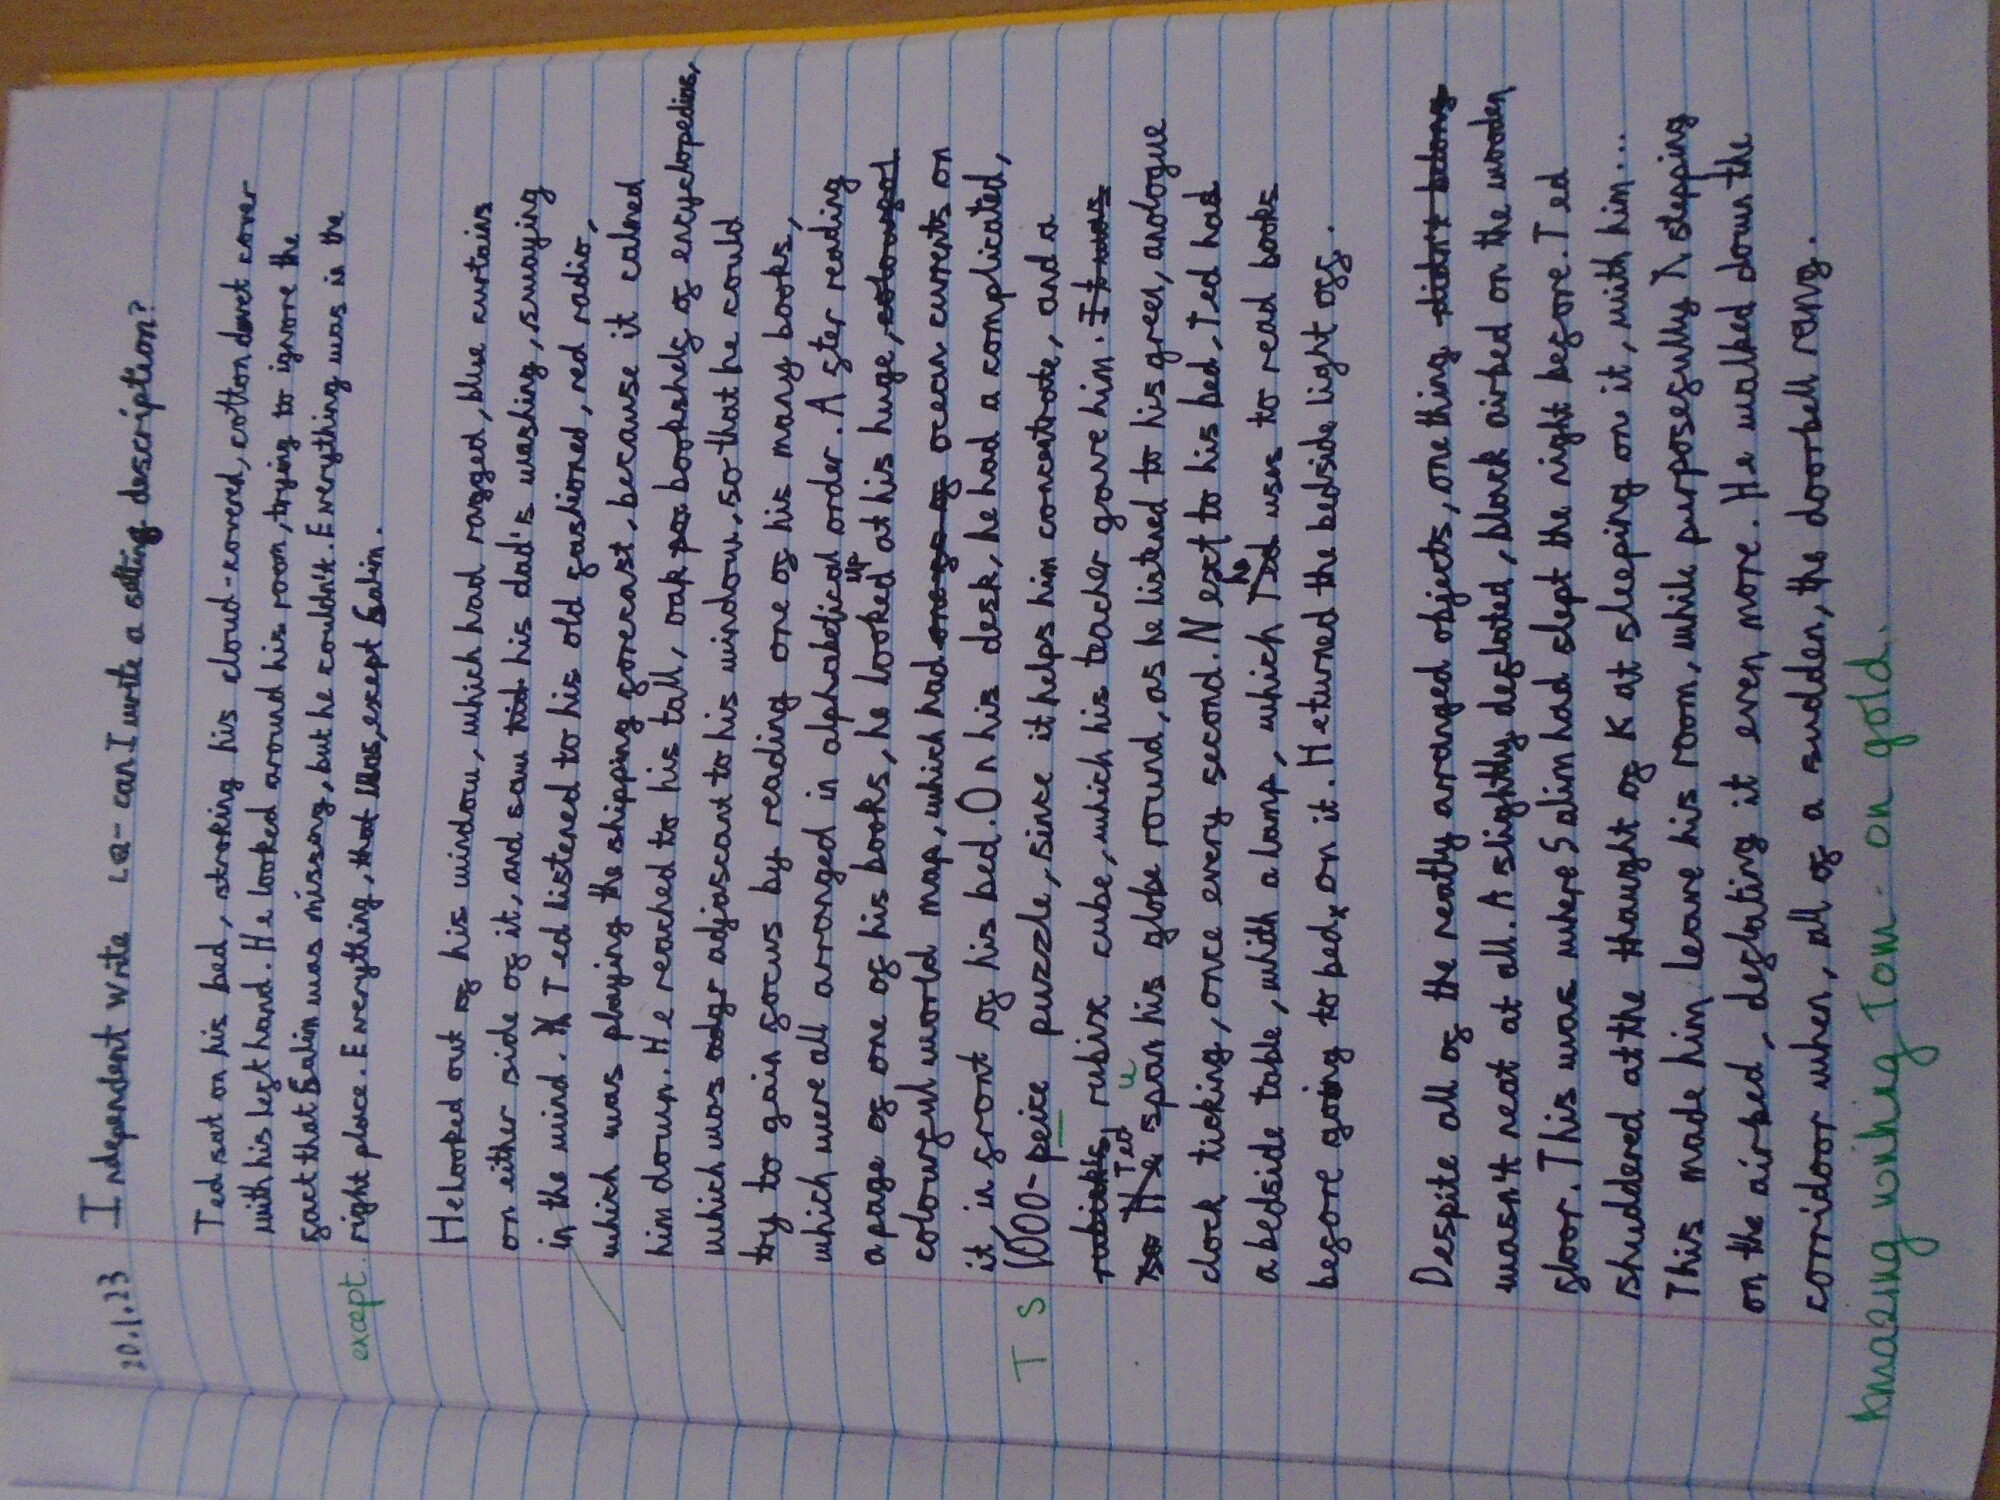 20.1.23 Independent write LQ- can I write a setting description?
Ted sat on his bed, stroking his cloud-covered, cotton duvet cover
with his left hand. He looked around his room, trying to ignore the
fact that Salim was missing, but he couldn't. Everything was in the
except right place. Everything, that was, exept Salim.
He looked out of his window, which had ragged, blue curtains
on either side of it, and saw his dad's washing, swaying
in the wind. Ted listened to his old fashioned, red radio,
which was playing the shipping forecast, because it calmed
him down. He reached to his tall, oak bookshelf of encyclopedias,
which was adjascant to his window, so that he could
try to gain focus by reading one of his many books,
which were all arranged in alphabetical order. After reading
a page of one of his books, he looked up at his huge,
colourful world map, which had ocean currents on
it, in front of his bed. On his desk, he had a complicated,
T S 1000-peice puzzle, since it helps him concentrate, and a
rubix cube, which his teacher gave him. It was
so He Ted span u his globe round, as he listened to his green, analogue
clock ticking, once every second. Next to his bed, Ted had
a bedside table, whith a lamp, which Ted he uses to read books
before going to bed, on it. He turned the bedside light off.
Despite all of the neatly arranged objects, one thing didn't belong
wasn't neat at all. A slightly deflated, black airbed on the wooden
floor. This was where Salim had slept the night before. Ted
shuddered at the thought of Kat sleeping on it, with him...
This made him leave his room, while purposefully stepping
on the airbed, deflating it even more. He walked down the
corridoor when, all of a sudden, the doorbell rang.
Amazing writing Tom - on gold.